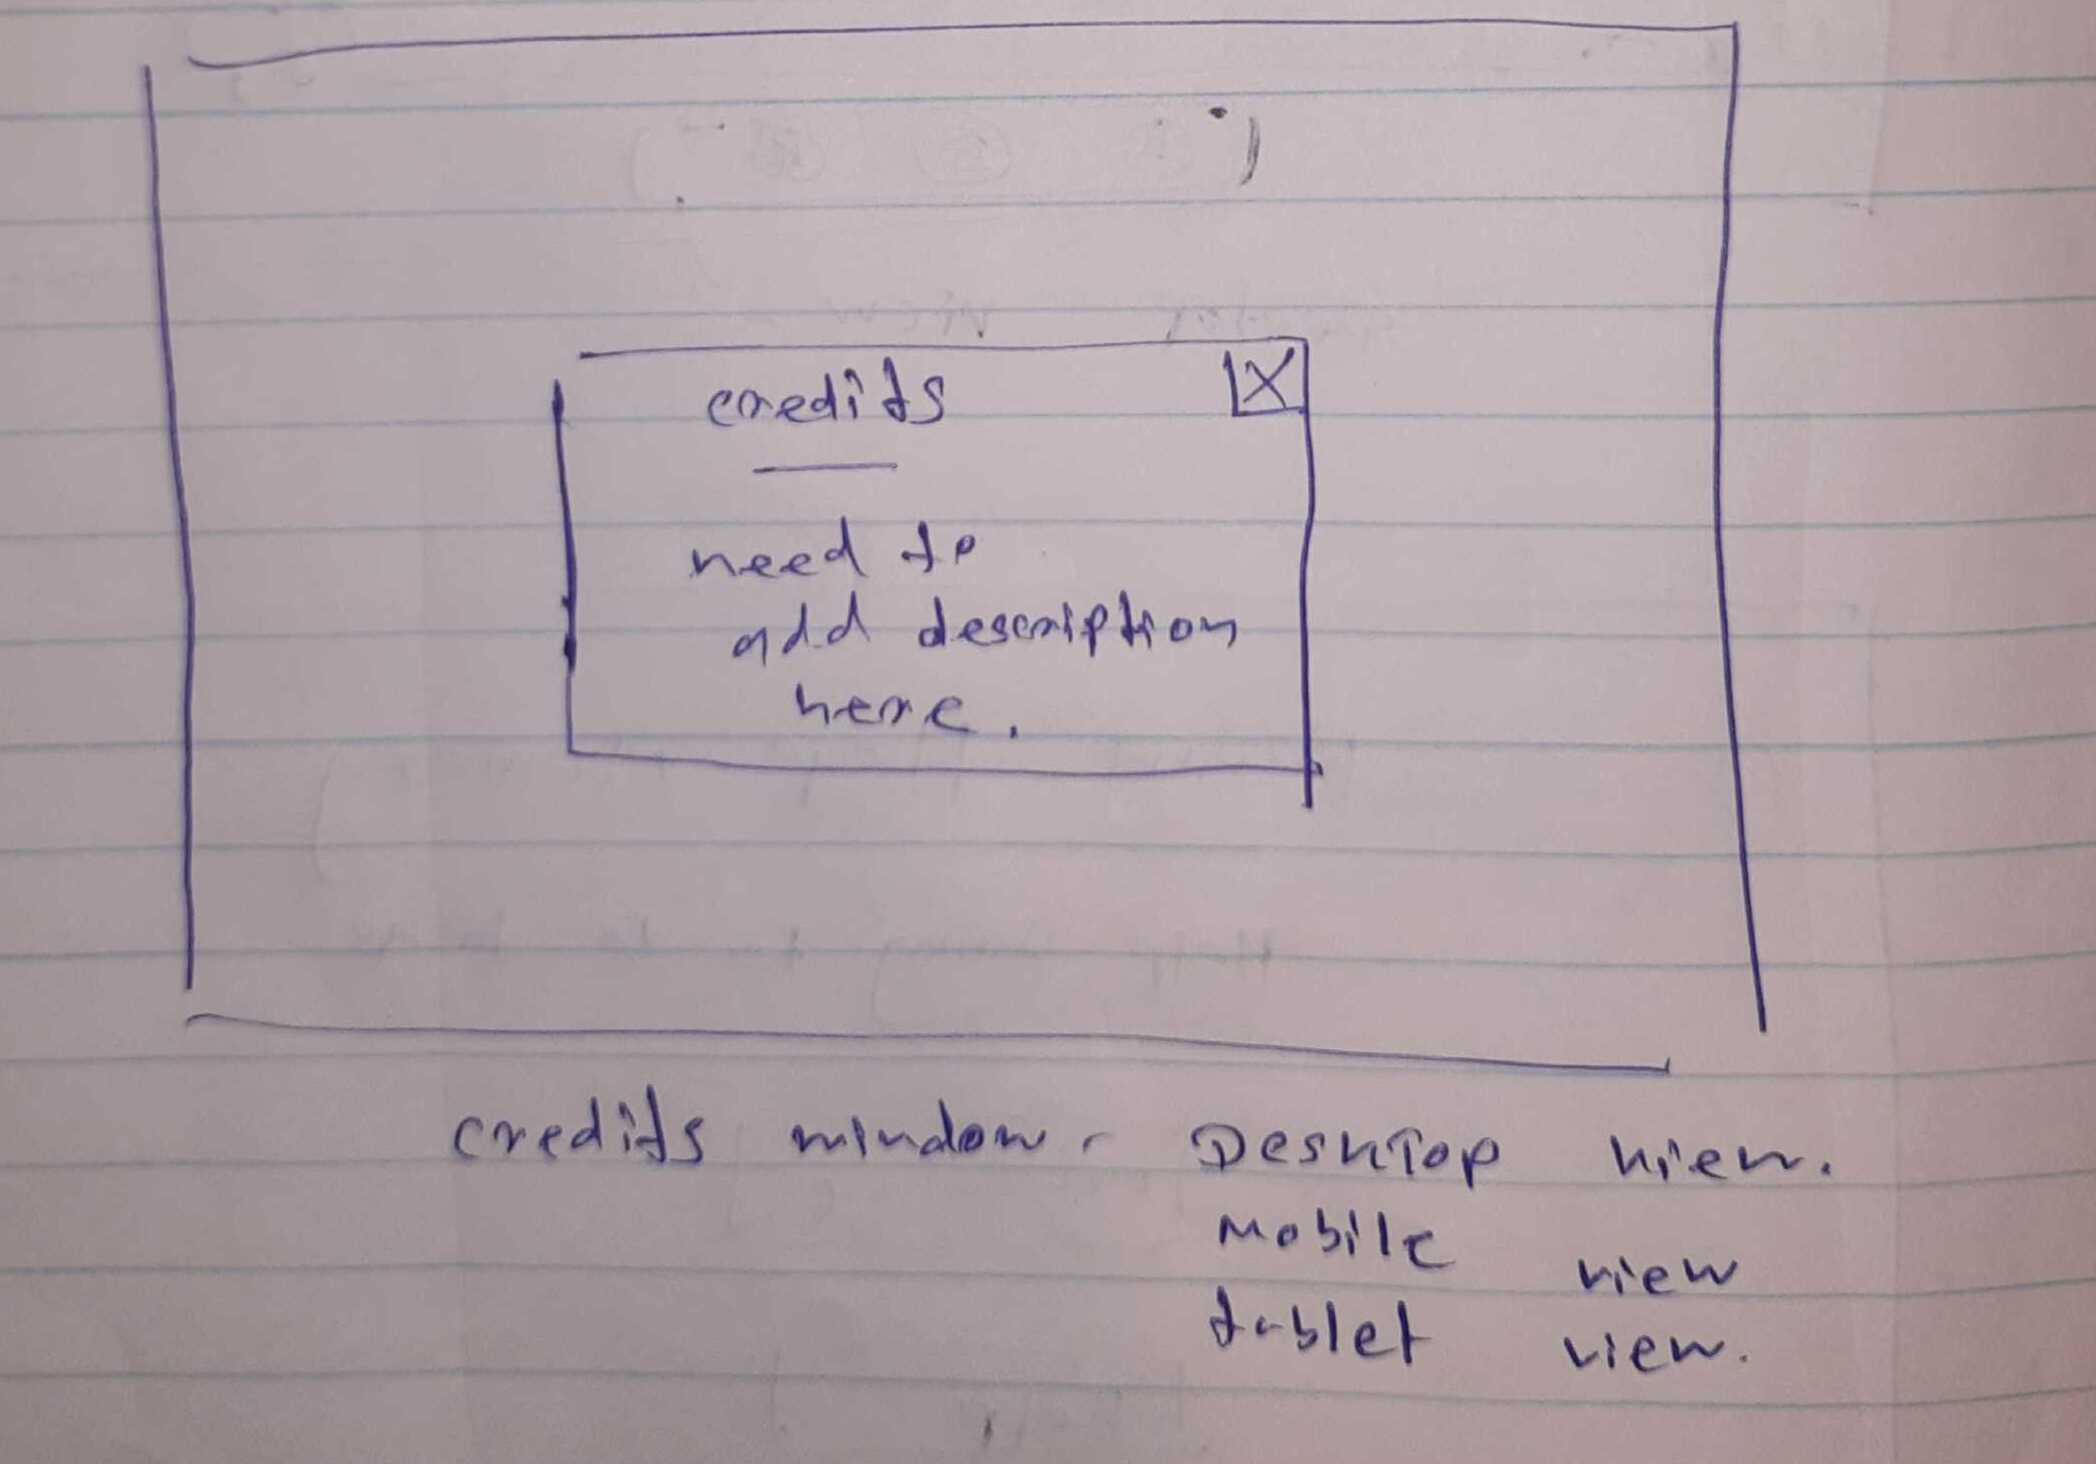 credits X
need to
add description
here.
credits window - Desktop view.
Mobile view
tablet view.